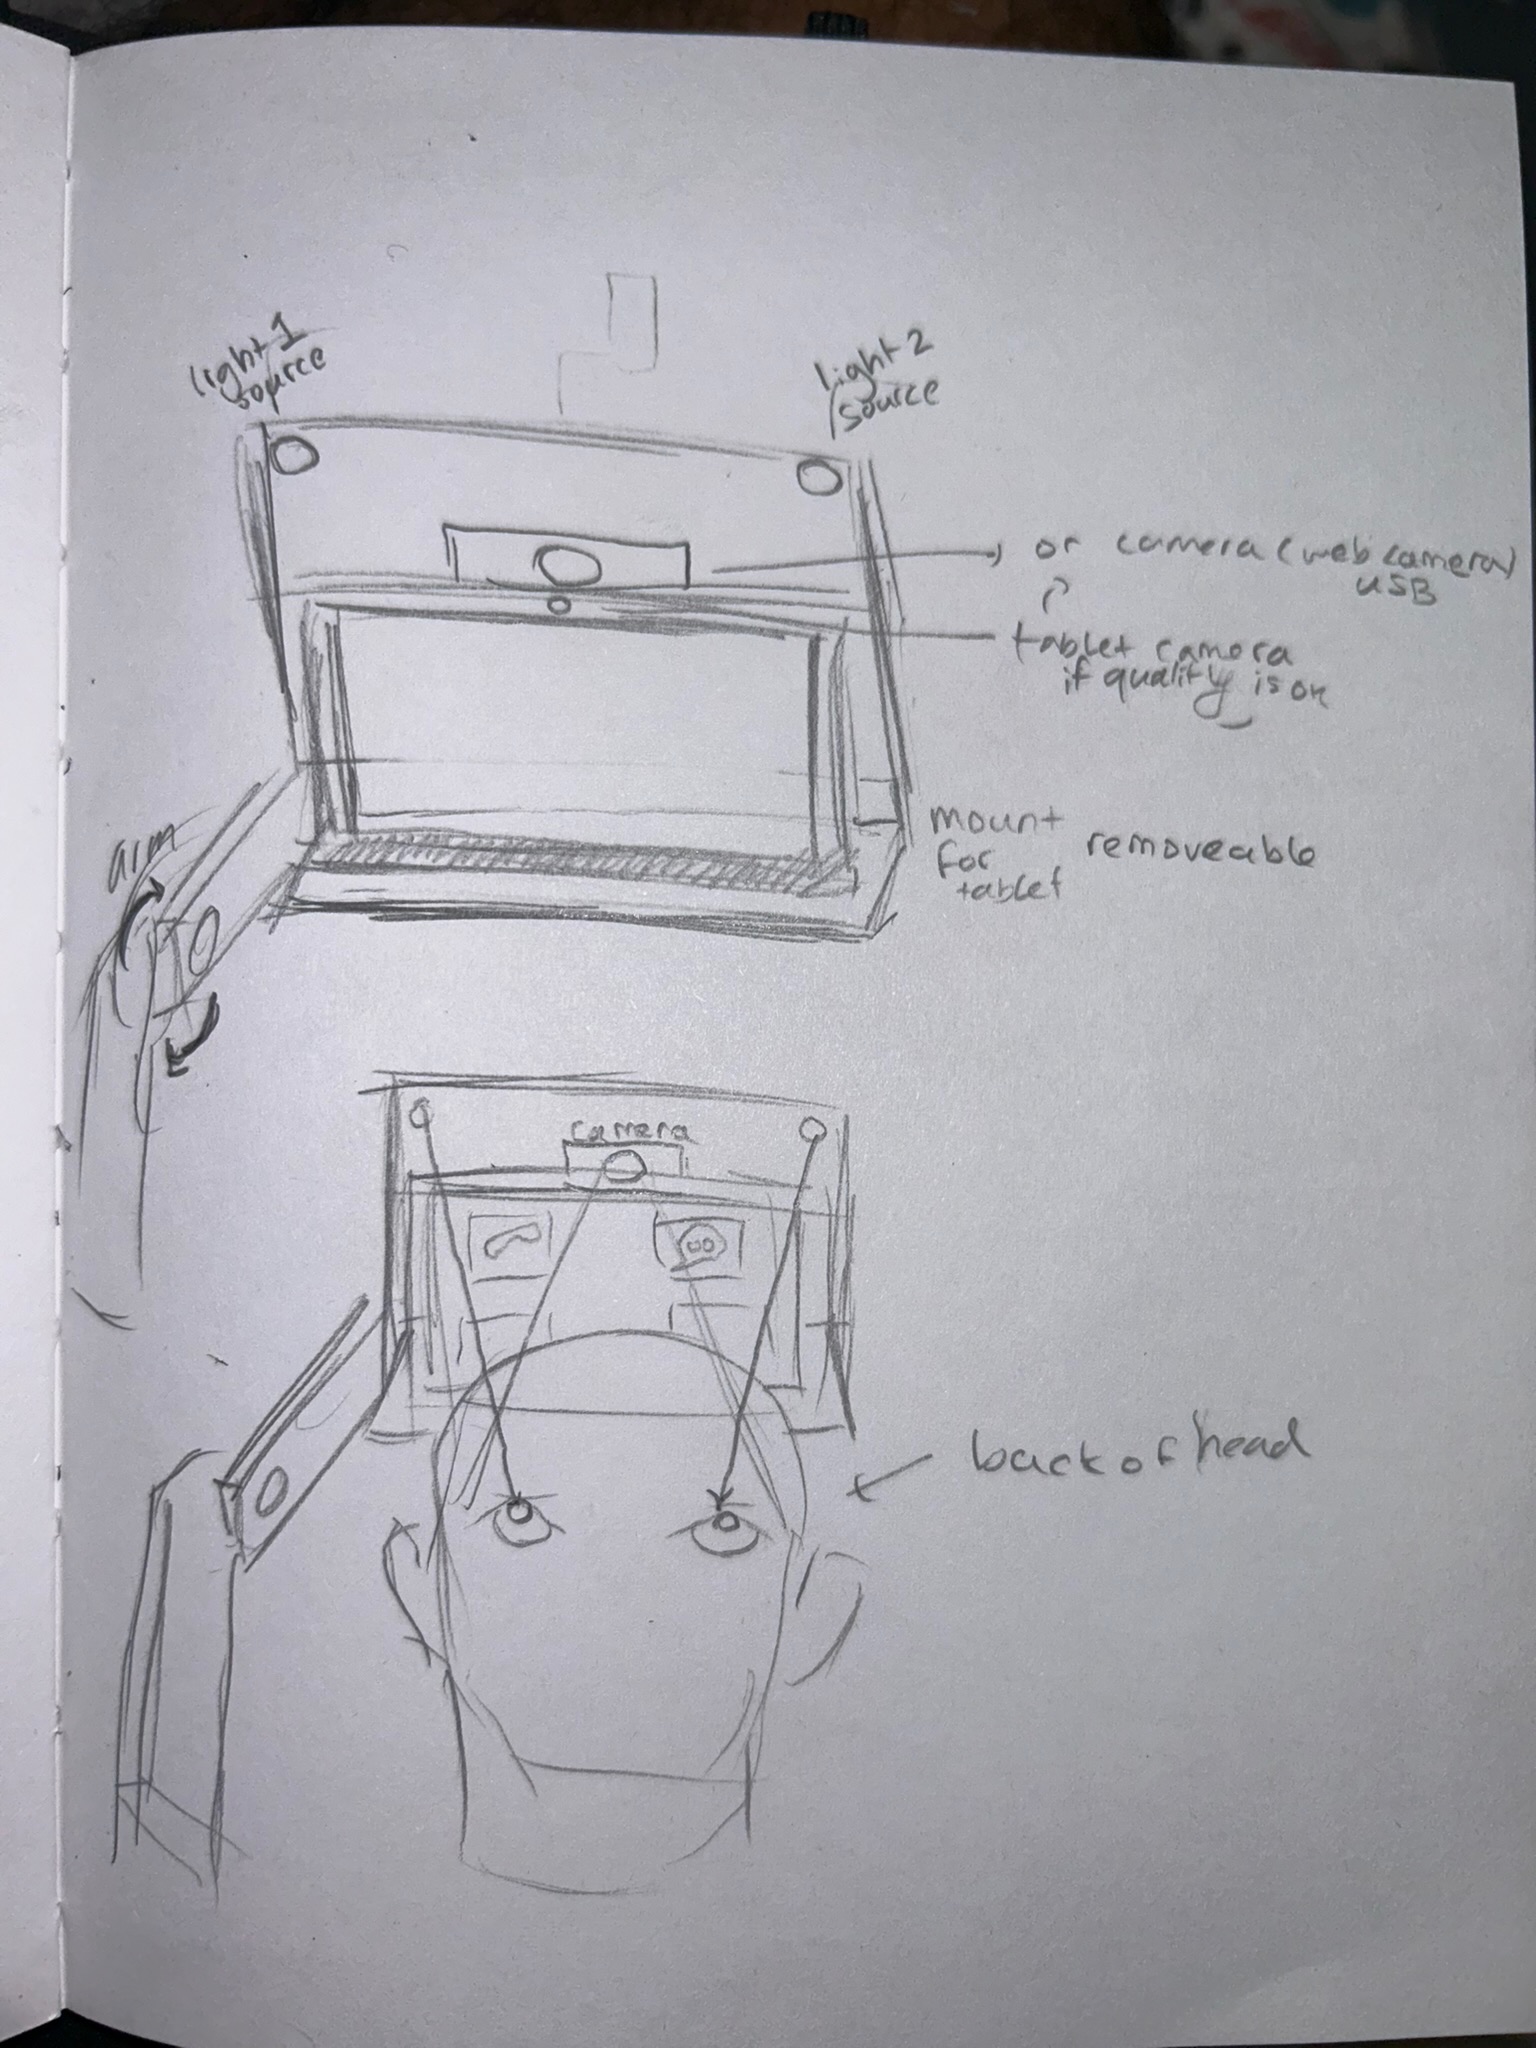 light 1
source
light 2
source
or camera (web camera)
USB
tablet camera
if quality is ok
arm
mount
for
tablet
removeable
camera
back of head